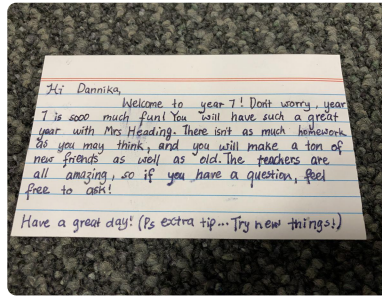 Hi Dannika,
Welcome to year 7! Don't worry, year
7 is sooo much fun! You will have such a great
year with Mrs Heading. There isn't as much homework
as you may think, and you will make a ton of
new friends as well as old. The teachers are
all amazing, so if you have a question, feel
free to ask!
Have a great day! (Ps extra tip... Try new things!)